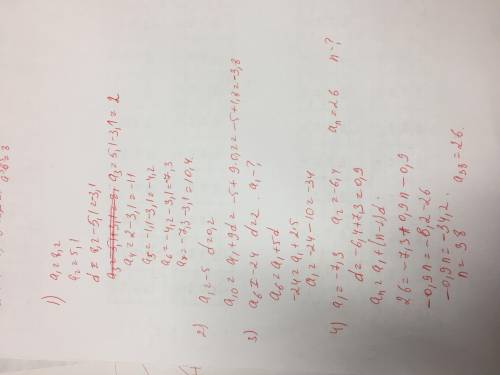 1) a₁=8,2
a₂=5,1
d=8,2-5,1=3,1
a₃=5,1-3,1=2
a₄=2-3,1=-11
a₅=-1,1-3,1=-4,2
a₆=-4,2-3,1=-7,3
a₇=-7,3-3,1=10,4.
2) a₁=-5 d=0,2
a₁₀=a₁+9d=-5+9·0,2=-5+1,8=-3,8
3) a₆=-24 d=2. a₁-?
a₆=a₁+5d
-24=a₁+2·5
a₁=-24-10=-34
4) a₁=-7,3 a₂=-6,4 aₙ=26 n-?
d=-6,4+7,3=0,9
aₙ=a₁+(n-1)d.
26=-7,3+0,9n-0,9
-0,9n=-8,2-26
-0,9n=-34,2.
n=38 a₃₈=26.